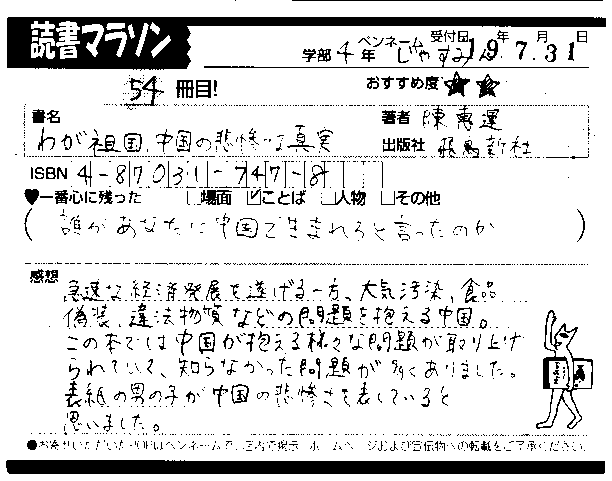 読書マラソン
学部 4年 ペンネーム じゃすみん 受付日 19年 7月 31日
54 冊目! おすすめ度 ★ ★
書名 著者 陳惠運
わが祖国、中国の悲惨な真実 出版社 飛鳥新社
ISBN 4-87031-747-8
♥一番心に残った □場面 ☑ことば □人物 □その他
(誰があなたに中国で生まれろと言ったのか)
感想 急速な経済発展を遂げる一方、大気汚染、食品
偽装、違法物質などの問題を抱える中国。
この本では中国が抱える様々な問題が取り上げ
られていて、知らなかった問題が多くありました。
表紙の男の子が中国の悲惨さを表していると
思いました。
●お寄せいただいたPOPはペンネームで、店内で掲示・ホームページおよび宣伝物への転載をご了承ください。